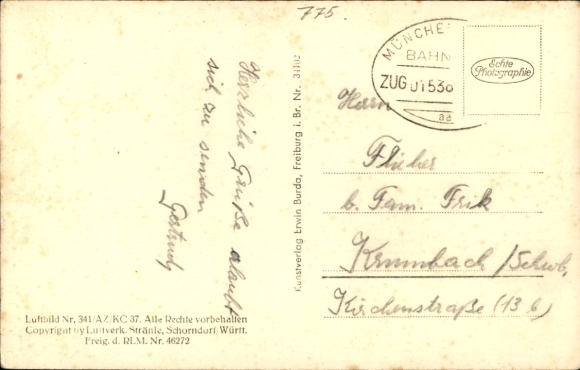 775.
Herzliche Grüße erlaubt
sich zu senden
Gertrud
Kunstverlag Erwin Burda, Freiburg i. Br. Nr.
MÜNCHE
BAHN
ZUG 01536
aa
Echte
Photographie
Herrn
b. Fam. Frik
Krumbach / Schwb.
Kirchenstraße (13 b)
Luftbild Nr. 341/AZ/KC 37. Alle Rechte vorbehalten
Copyright by Luftverk. Strähle, Schorndorf/Württ.
Freig. d. RLM. Nr. 46272